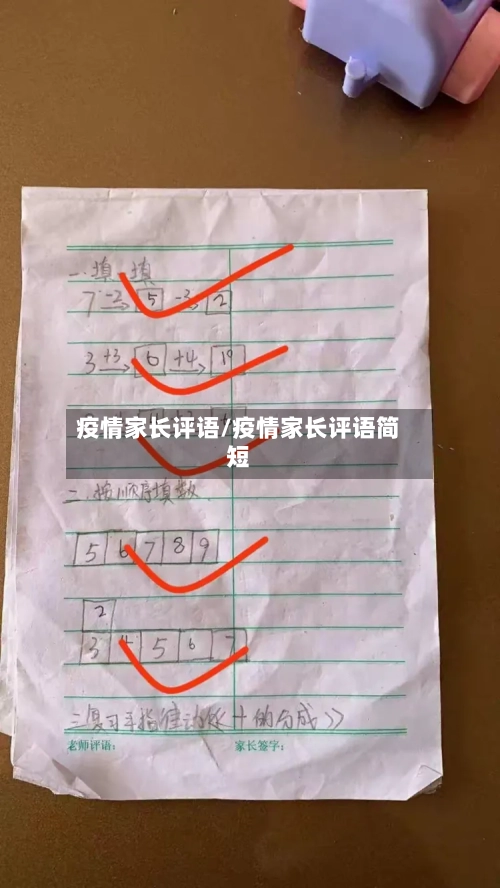 一.填一填
7 -2→ 5 -3→ 2
3 +3→ 6 +4→ 10
疫情家长评语/疫情家长评语简
短
二.按顺序填数
5 6 7 8 9
2
3 4 5 6 7
三复习手指律动《十的合成》
老师评语: 家长签字: